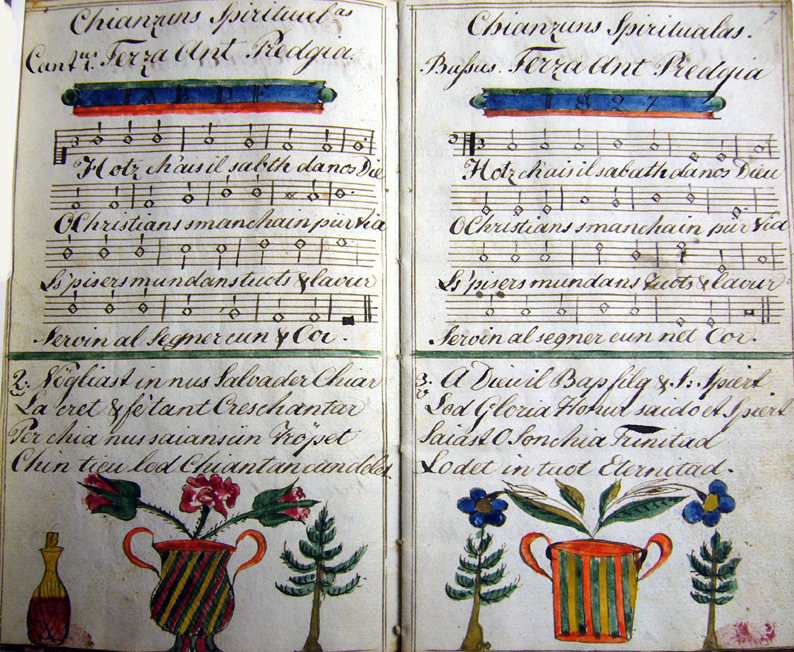 Chianzuns Spirituelas
Cantus. Terza Ant Predgia.
IABPF
Hotz ch'ais il sabth da nos Die
O Christians s manchain pür via
Ls' pisers mundans tuots & lavur
Servin al Segner cun & Cor.
2. Vögliast in nus Salvader Chiar
La cret & fè tant Creschantar
Per chia nus saians in
Chin tieu led Chiantan cundeles
Chianzuns Spiritualas.
7
Bassus. Terza Ant Predgia
1827
Hotz ch'ais il sabath da nos Dieu
O Christians s manchain pür via
Ls' pisers mundans tuots & lavur
Servin al segner cun net Cor.
3. A Dieu il Bap filg & S: Spiert
Lod Gloria Honur saido et Spiert
Saiast O Sonchia Trinitad
Lodet in tuot Eternitad.